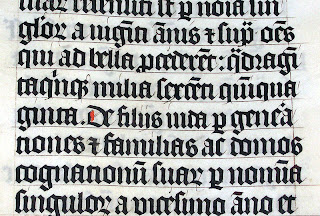 suaꝝ recensiti sūt ꝑ noīa sin
gloꝝ a uigīti ānis ⁊ sup̄ oēs
qui ad bella ꝓcederēt: q̄dragī
taq̄nqꝫ milia sexcēti quīqua
ginta. De filiis iuda ꝑ genera
tiones ⁊ familias ac domos
cognationū suaꝝ ꝑ nomīa
singuloꝝ a vicesimo āno et